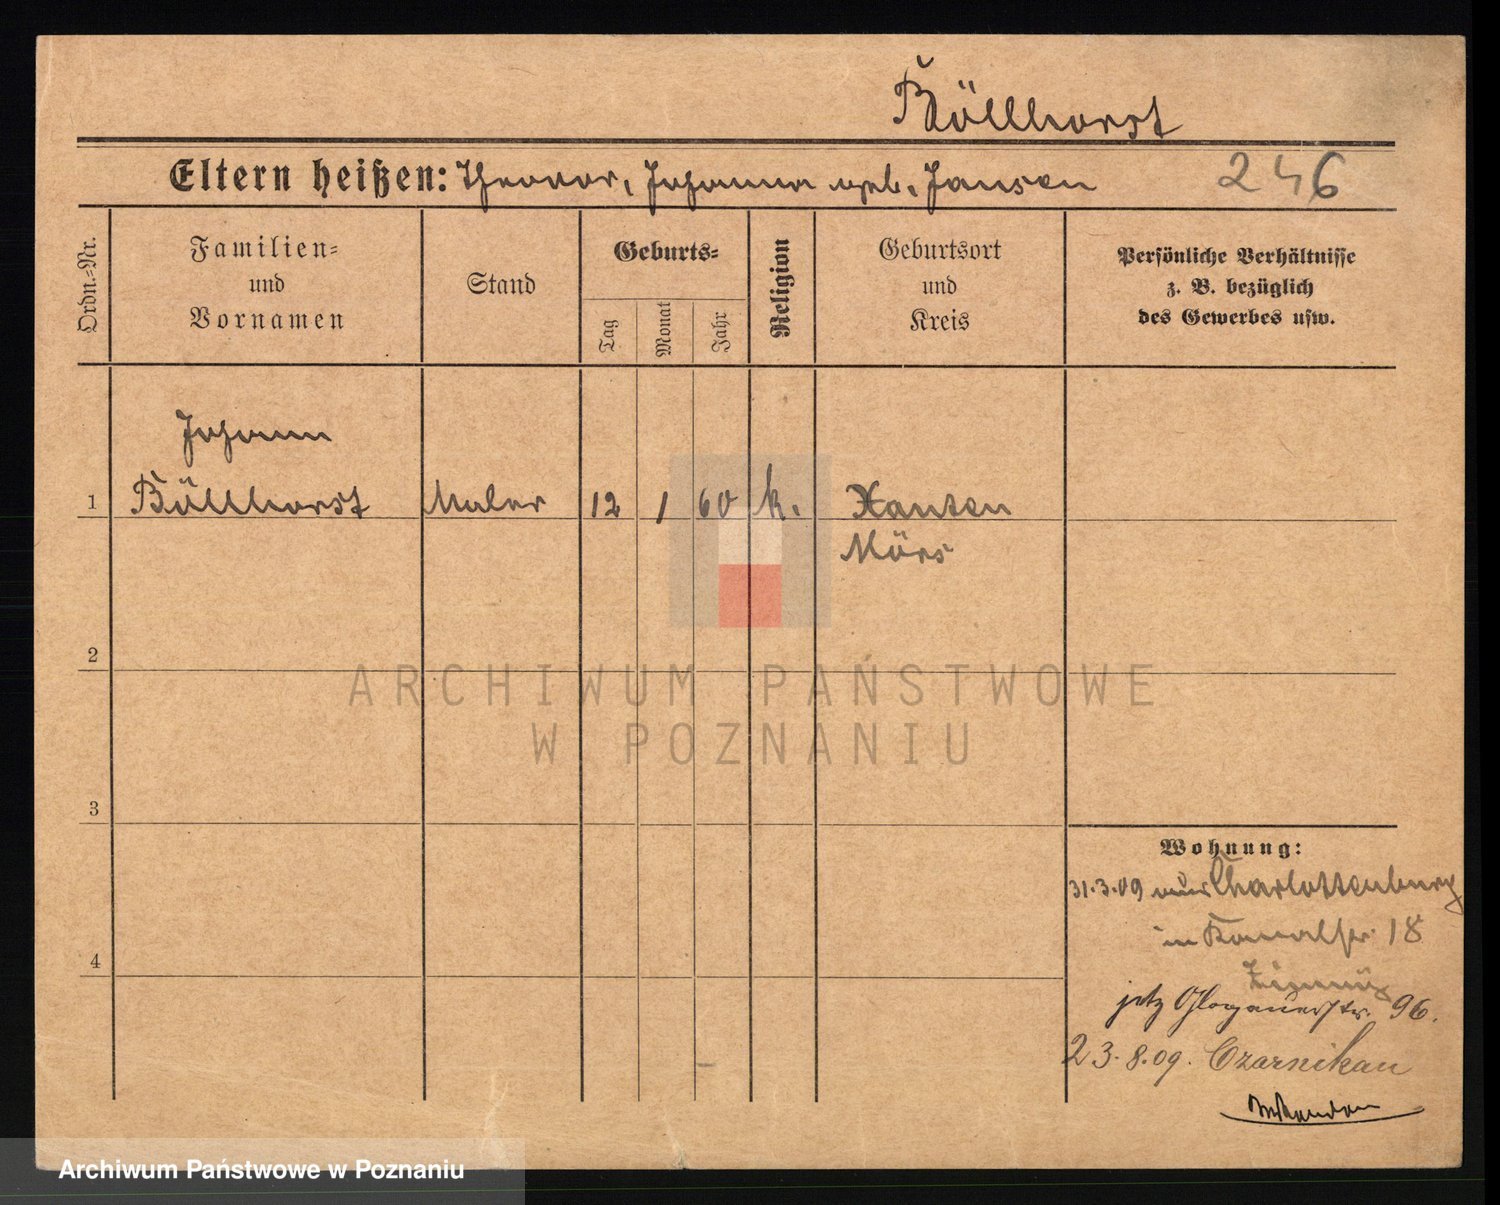 Böllhorst
Eltern heißen: Theodor, Johanna geb. Jansen 246
Ordn.-Nr.
Familien-
und
Vornamen
Stand
Geburts-
Tag
Monat
Jahr
Religion
Geburtsort
und
Kreis
Persönliche Verhältnisse
z. B. bezüglich
des Gewerbes usw.
Johann
1 Böllhorst Maler 12 1 60 k. Xanten
Mörs
2
3
4
Wohnung:
31.3.09 aus Charlottenburg
in Kanalstr. 18
jetz Glogauerstr. 96.
23.8.09. Czarnikau
ARCHIWUM PAŃSTWOWE
W POZNANIU
Archiwum Państwowe w Poznaniu